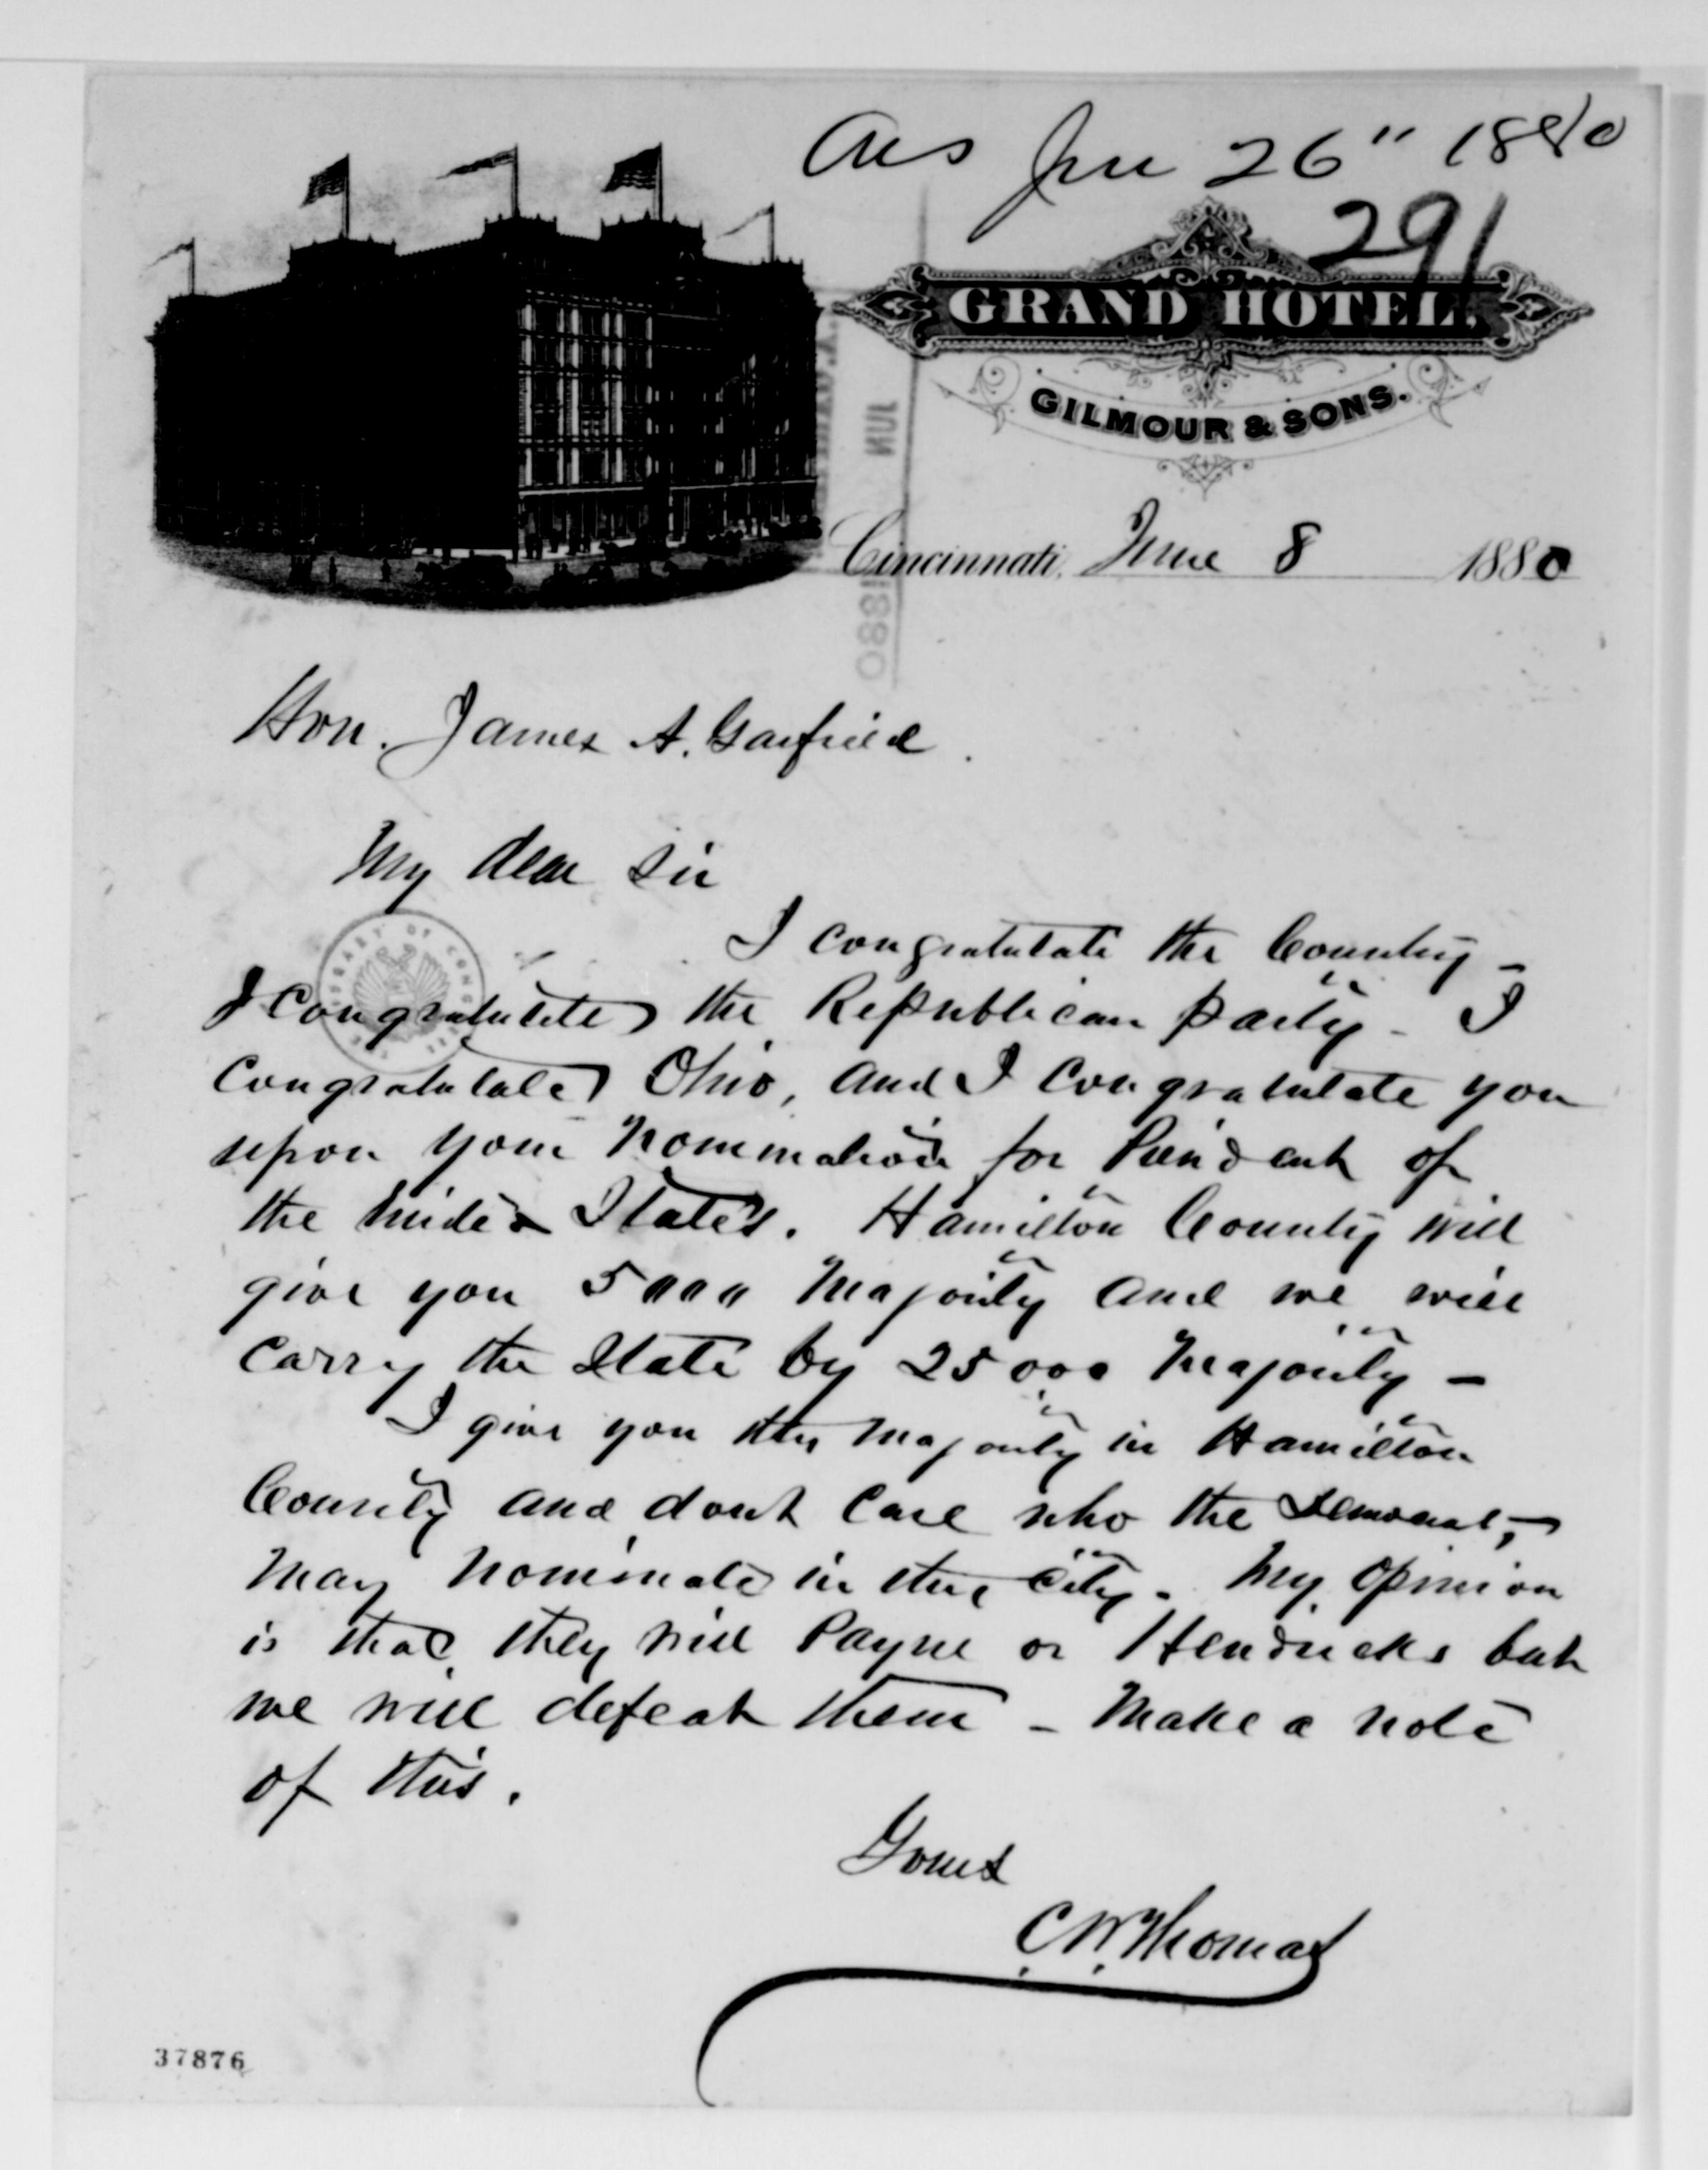 Ans Jun 26" 1880
291
GRAND HOTEL.
GILMOUR & SONS.
JUN
1880
Cincinnati, June 8 1880
Hon. James A. Garfield.
My dear Sir
I congratulate the Country –
LIBRARY OF CONGRESS
I congratulate the Republican party – I
congratulate Ohio, and I congratulate you
upon your nomination for President of
the United States. Hamilton County will
give you 5000 Majority and we will
carry the State by 25000 Majority –
I give you this majority in Hamilton
County and dont care who the Democrats
may nominate in this city. My opinion
is that they will Payne or Hendricks but
we will defeat them – Make a note
of this.
Yours
C. W. Thomas
37876